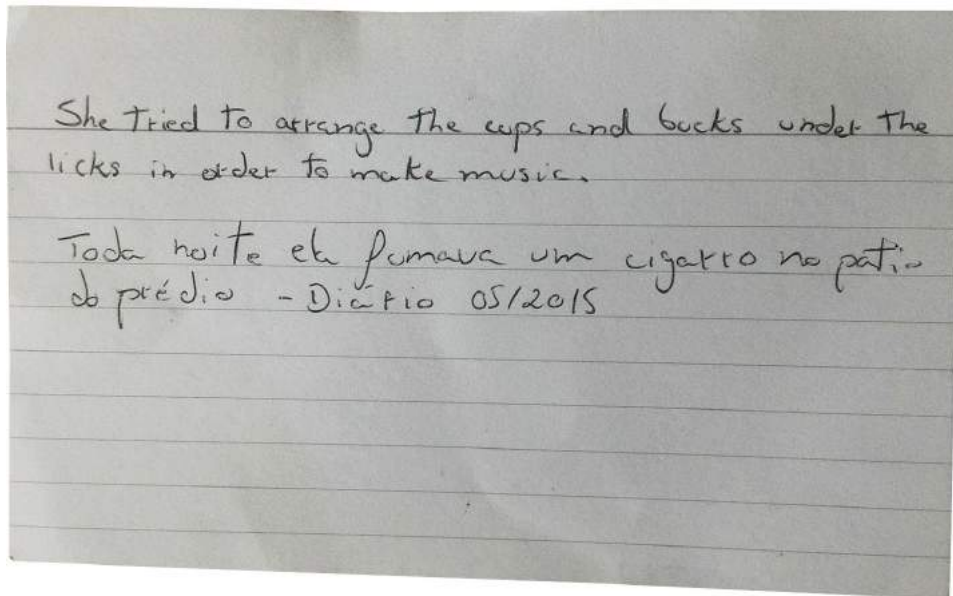 She tried to arrange the cups and bucks under the
licks in order to make music.
Toda noite ela fumava um cigarro no patio
do prédio - Diário 05/2015